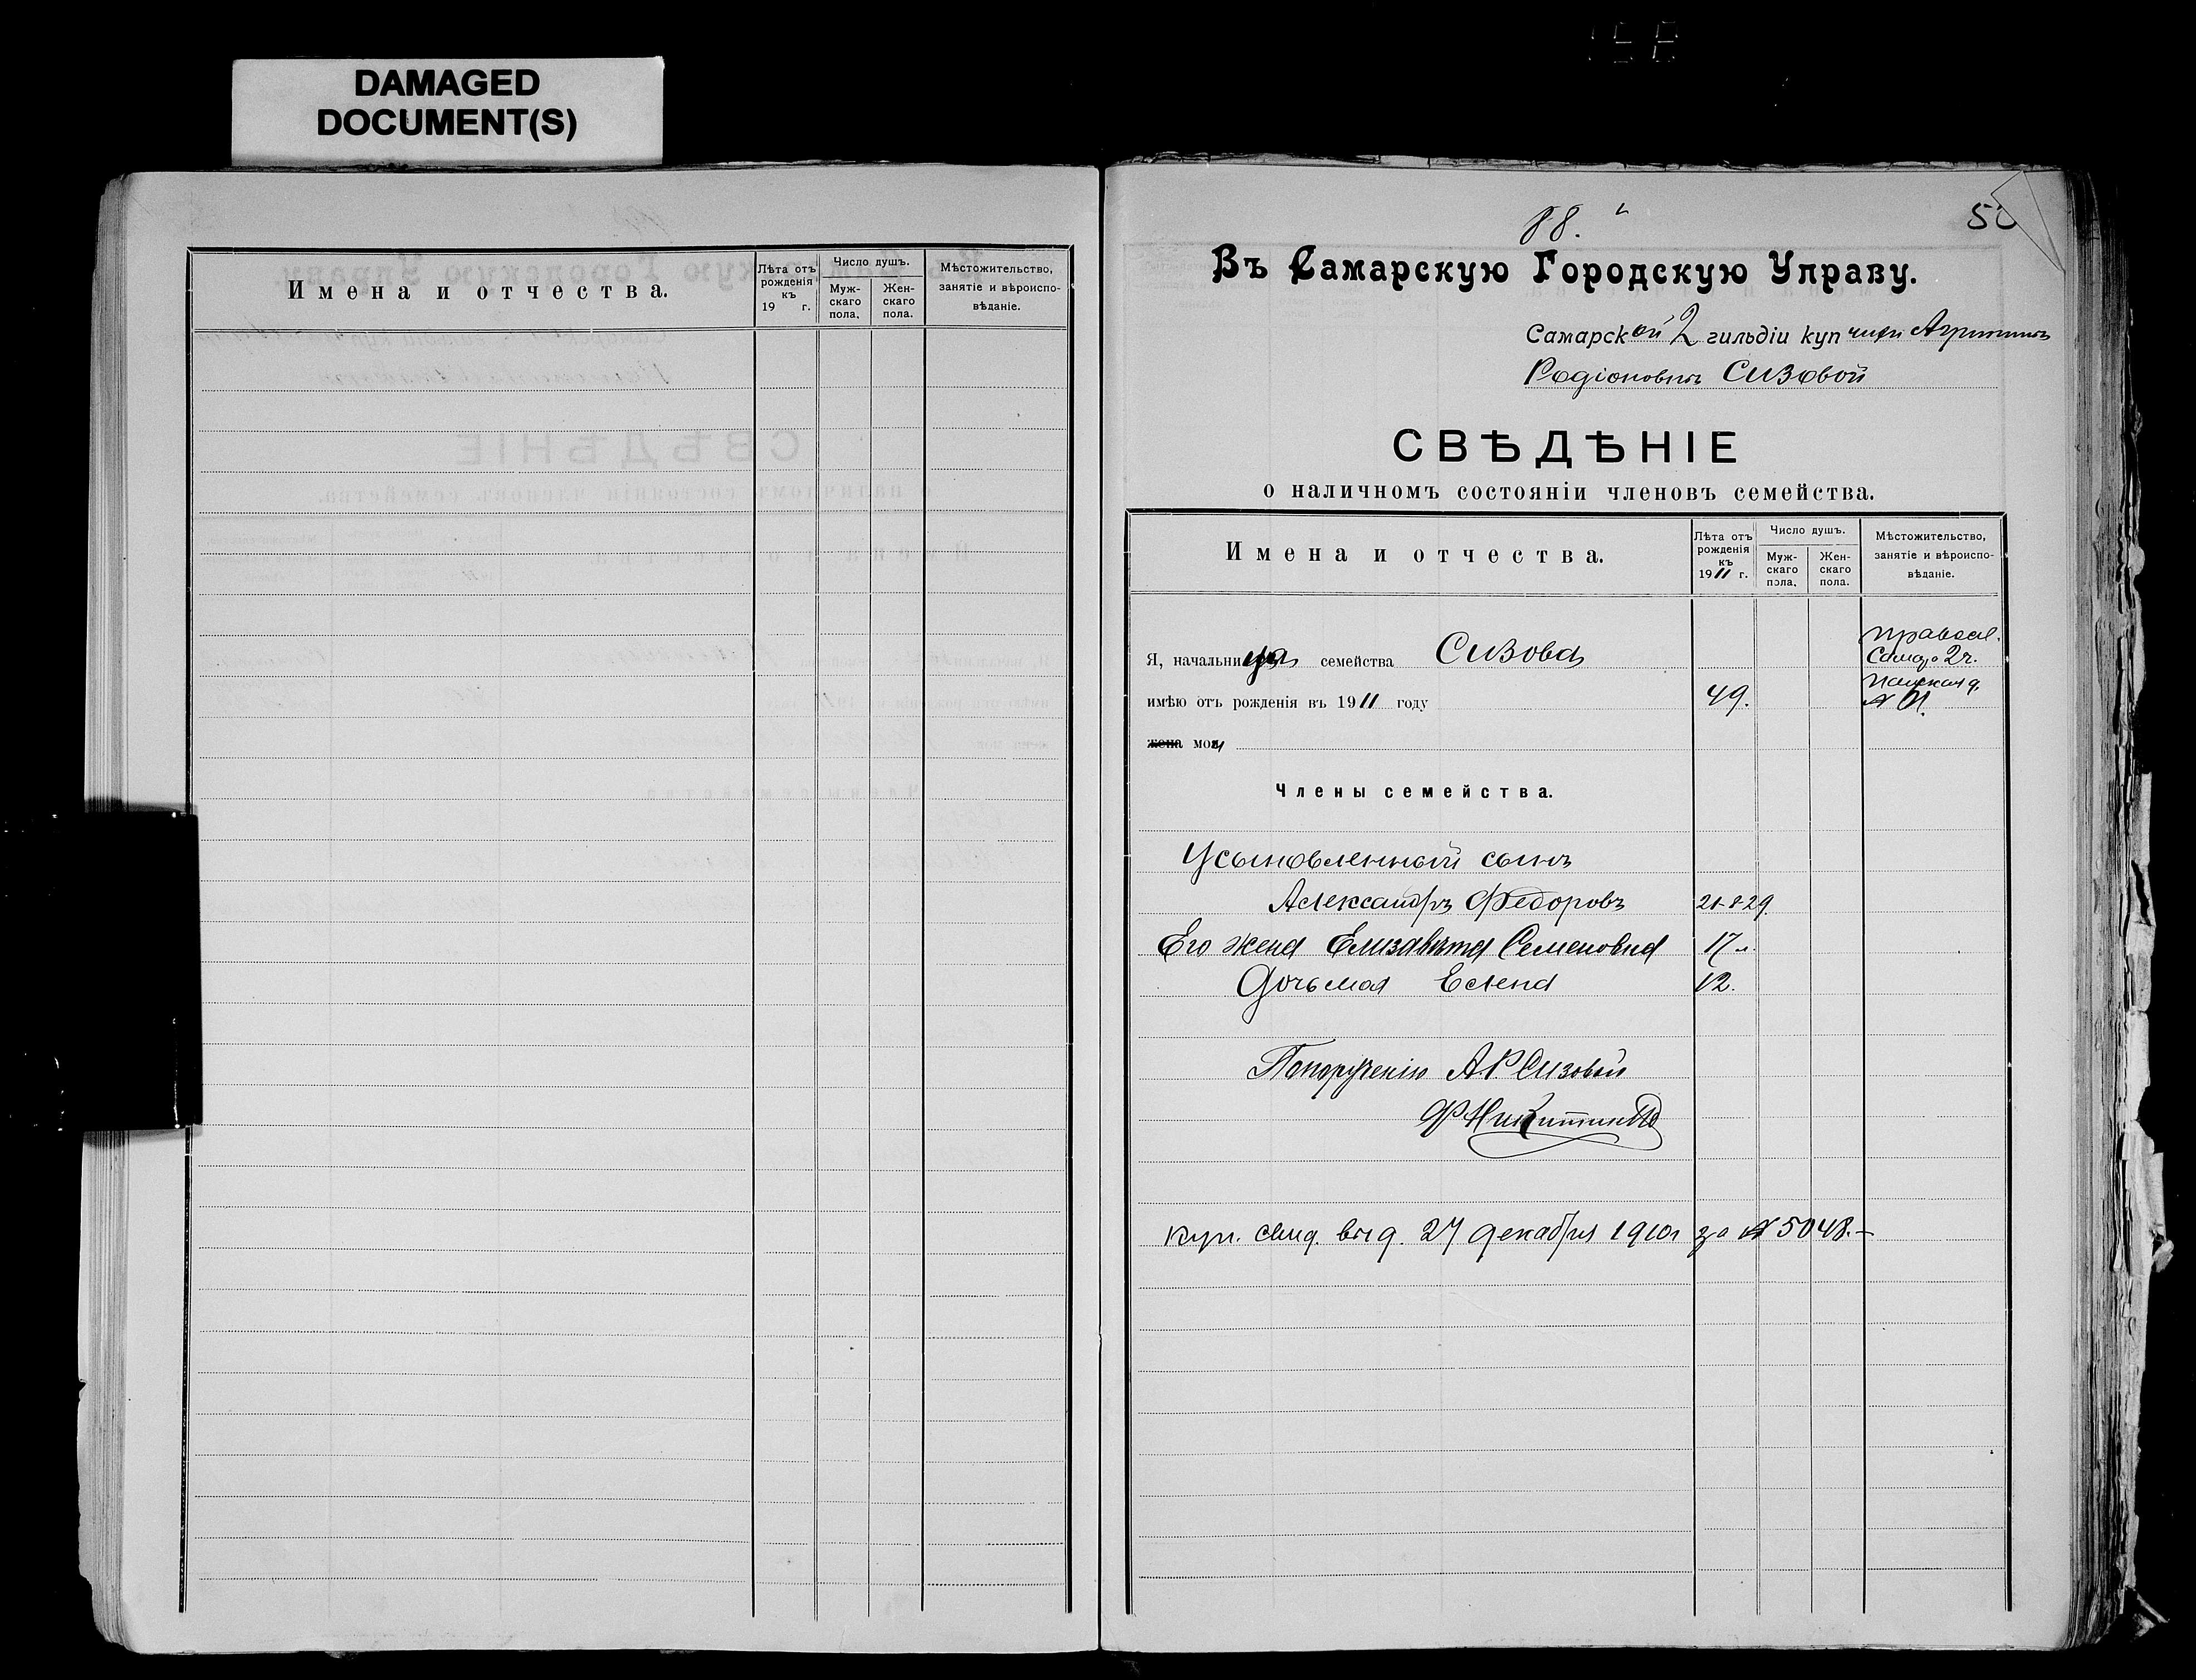 DAMAGED
DOCUMENT(S)
Имена и отчества.
Лѣта отъ рожденія къ 19 г.
Число душъ.
Муж-скаго пола.
Жен-скаго пола.
Мѣстожительство, занятіе и вѣроиспо-вѣданіе.
88.
Въ Самарскую Городскую Управу.
Самарской 2 гильдіи купчихи
Родіоновны Сизовой
СВѢДѢНІЕ
о наличномъ состояніи членовъ семейства.
Имена и отчества.
Лѣта отъ рожденія къ 1911 г.
Число душъ.
Муж-скаго пола.
Жен-скаго пола.
Мѣстожительство, занятіе и вѣроиспо-вѣданіе.
Я, начальница семейства Сизова
правосл.
2 ч.
имѣю отъ рожденія въ 1911 году 49.
жена мои
Члены семейства.
Усыновленный сынъ
Александръ Федоровъ
Его жена Елизавета Семеновна 17 л.
Дочь моя Елена 12.
По порученію А. Р. Сизовой
Ф Никитинъ
куп. свид. выд. 27 декабря 1910 г за № 5048.–